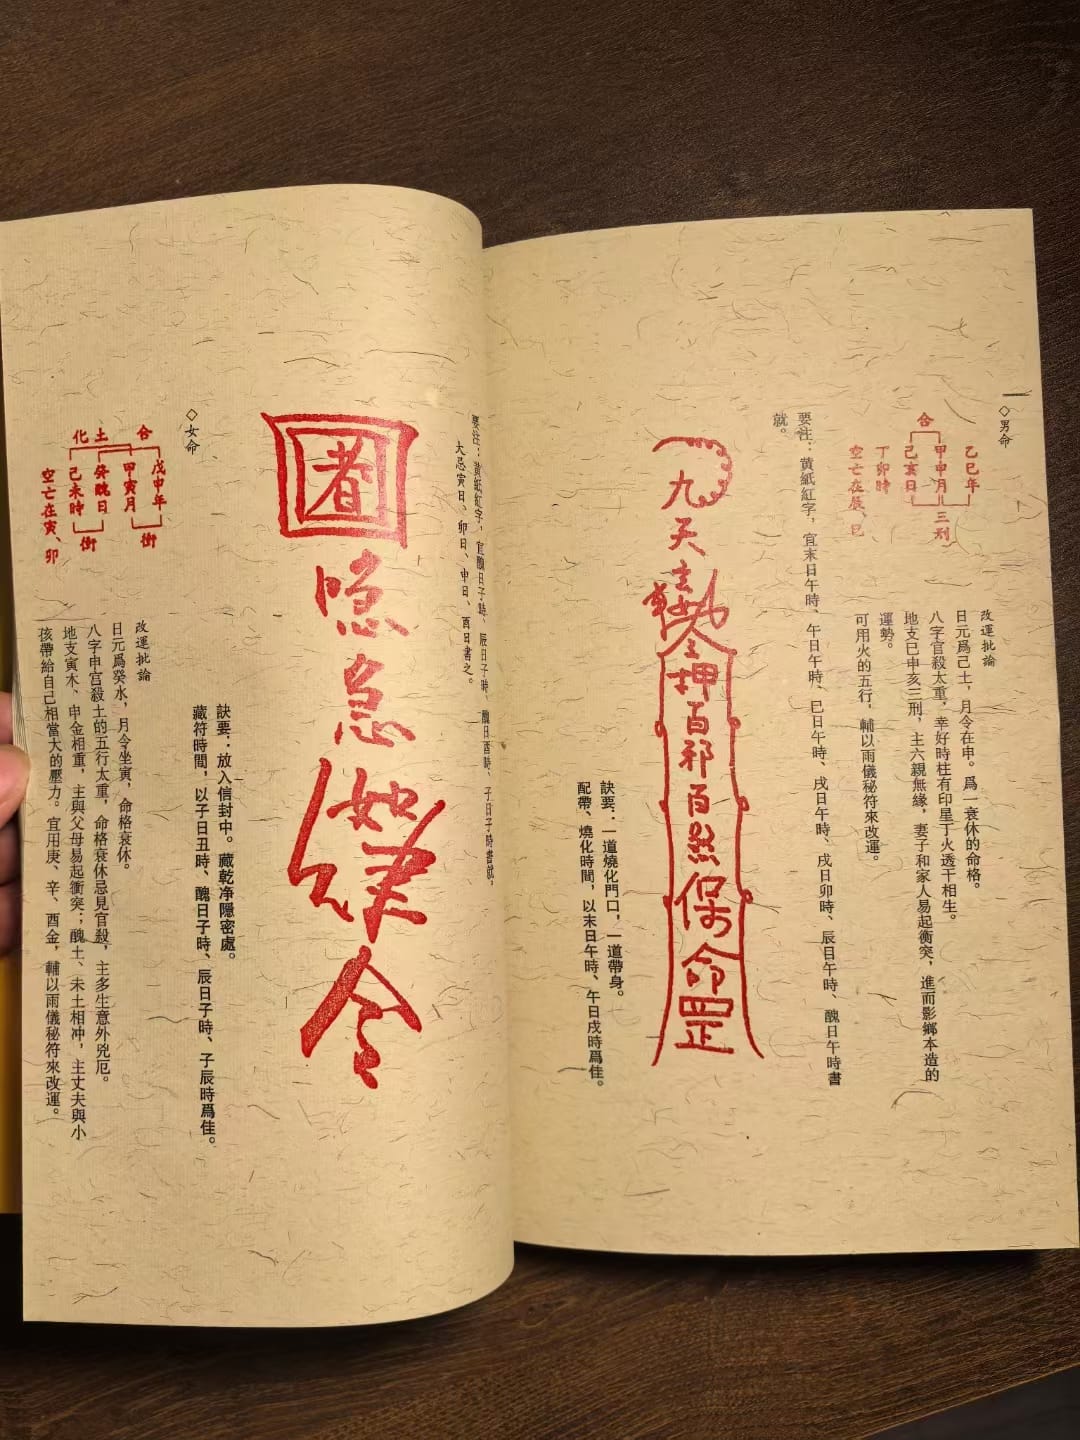 ◇男命
乙巳年
甲申月
己亥日
丁卯時
空亡在辰、巳
合
三刑
改運批論
日元爲己土，月令在申。爲一衰休的命格。
八字官殺太重，幸好時柱有印星丁火透干相生。
地支巳申亥三刑，主六親無緣，妻子和家人易起衝突，進而影鄉本造的
運勢。
可用火的五行，輔以兩儀秘符來改運。
要注：黃紙紅字，宜末日午時、午日午時、巳日午時、戌日午時、戌日卯時、辰日午時、醜日午時書
就。
九天
勅令押百邪百煞保命罡
訣要：一道燒化門口，一道帶身。
配帶、燒化時間，以末日午時、午日戌時爲佳。
要注：黃紙紅字，宜醜日子時、辰日子時、醜日酉時、子日子時書就，
大忌寅日、卯日、申日、酉日書之。
唸急如律令
訣要：放入信封中。藏乾净隱密處。
藏符時間，以子日丑時、醜日子時、辰日子時、子辰時爲佳。
◇女命
戊申年
甲寅月
癸醜日
己未時
空亡在寅、卯
合
化土
衝
衝
改運批論
日元爲癸水，月令坐寅，命格衰休。
八字申宫殺土的五行太重，命格衰休忌見官殺，主多生意外兇厄。
地支寅木、申金相重，主與父母易起衝突；醜土、未土相冲，主丈夫與小
孩帶給自己相當大的壓力。宜用庚、辛、酉金，輔以兩儀秘符來改運。